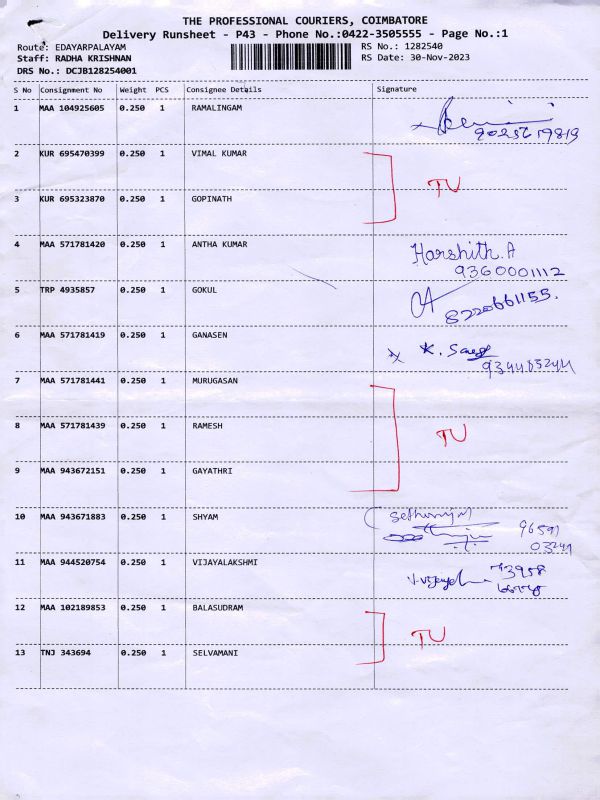 THE PROFESSIONAL COURIERS, COIMBATORE
Delivery Runsheet - P43 - Phone No.:0422-3505555 - Page No.:1
Route: EDAYARPALAYAM RS No.: 1282540
Staff: RADHA KRISHNAN RS Date: 30-Nov-2023
DRS No.: DCJB128254001
S No Consignment No Weight PCS Consignee Details Signature
1 MAA 104925605 0.250 1 RAMALINGAM
9025679819
2 KUR 695470399 0.250 1 VIMAL KUMAR
TU
3 KUR 695323870 0.250 1 GOPINATH
4 MAA 571781420 0.250 1 ANTHA KUMAR Harshith.A
9360001112
5 TRP 4935857 0.250 1 GOKUL
8220661155.
6 MAA 571781419 0.250 1 GANASEN
x K.
7 MAA 571781441 0.250 1 MURUGASAN
8 MAA 571781439 0.250 1 RAMESH TU
9 MAA 943672151 0.250 1 GAYATHRI
10 MAA 943671883 0.250 1 SHYAM
11 MAA 944520754 0.250 1 VIJAYALAKSHMI
12 MAA 102189853 0.250 1 BALASUDRAM
TU
13 TNJ 343694 0.250 1 SELVAMANI